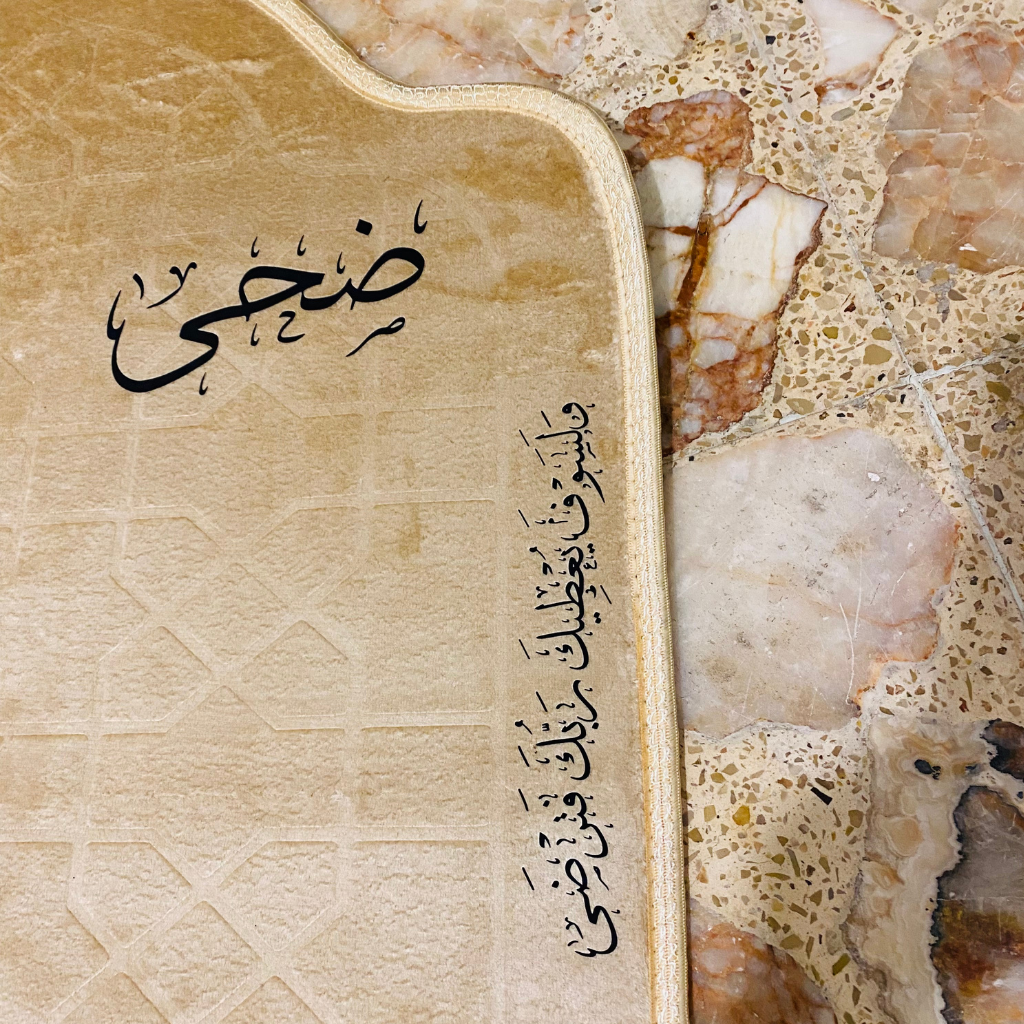 ضحى
وَلَسَوْفَ يُعْطِيكَ رَبُّكَ فَتَرْضَىٰ